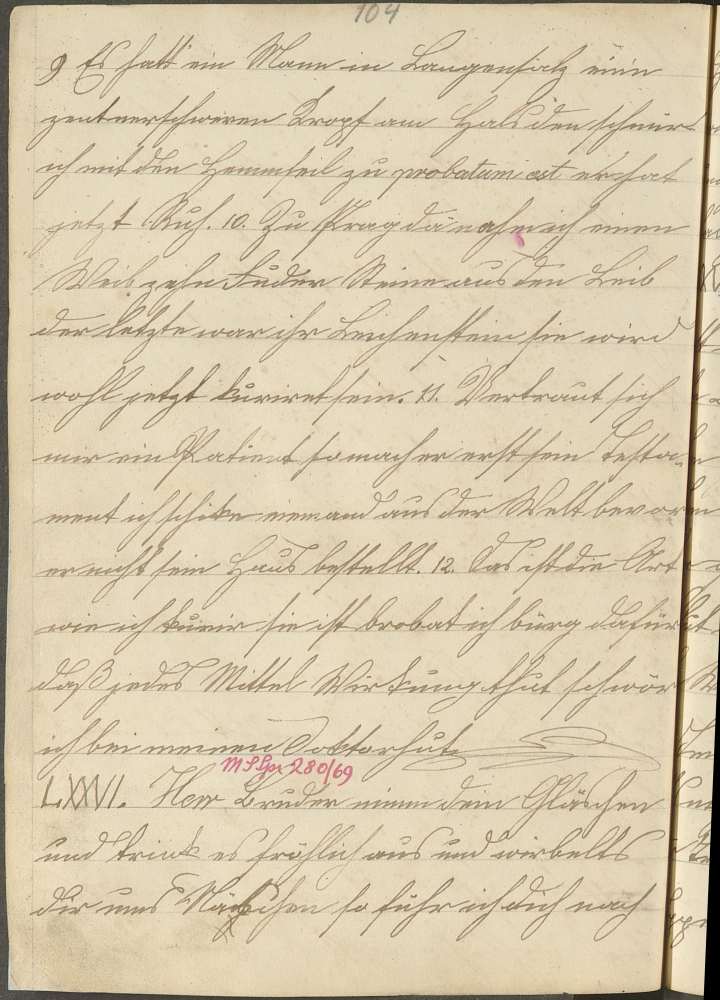 104
9 Es hatt ein Mann in Langensalz einen
zentnerschweren Kropf am Hals den schnürt
ich mit den Hemmseil zu probatum est er hat
jetzt Ruh. 10. Zu Prag da nahm ich einen
Weib zehn Fuder Steine aus den Leib
der letzte war ihr Leichenstein sie wird
wohl jetzt kuriret sein. 11. Vertraut sich
mir ein Patient so mach er erst sein Testa-
ment ich schike niemand aus der Welt bevor
er nicht sein Haus bestellt. 12. Das ist die Art
wie ich kurir sie ist brobat ich bürg dafür
daß jedes Mittel Wirkung thut schwör
ich bei meinen Doktorhut.
280/69
LXXVI. Herr Bruder nimm dein Gläschen
und trink es fröhlich aus und wirbelts
dir ums Näschen so führ ich dich nach